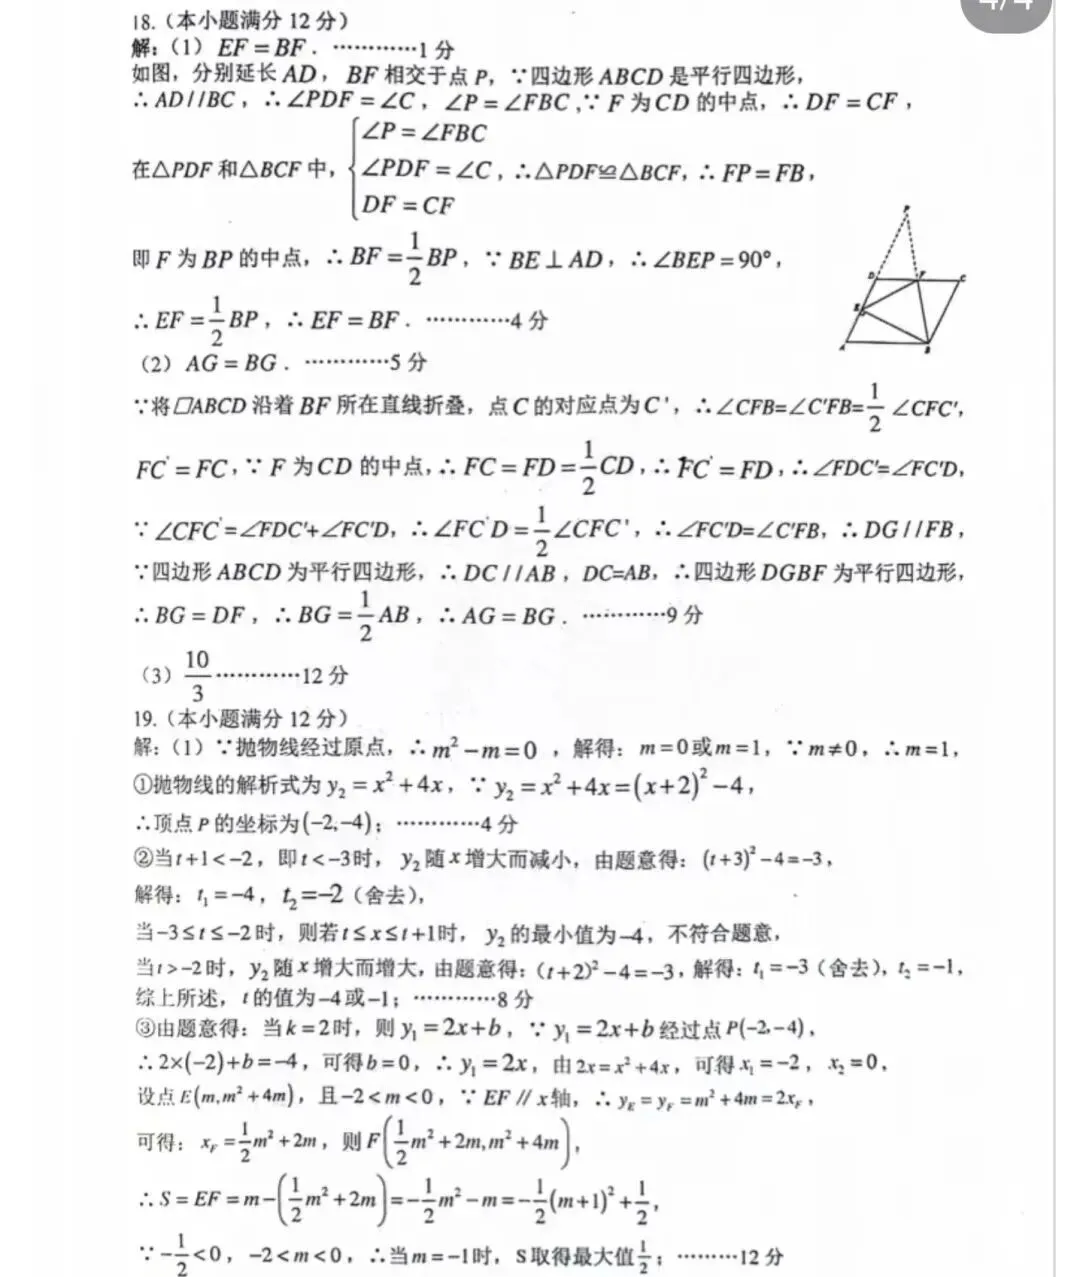 4/4
18.（本小题满分 12 分）
解:（1） EF = BF . …………1 分
如图，分别延长 AD， BF 相交于点 P，∵四边形 ABCD 是平行四边形，
∴ AD//BC，∴ ∠PDF = ∠C，∠P = ∠FBC ,∵ F 为 CD 的中点，∴ DF = CF，
在△PDF 和△BCF 中，{∠P = ∠FBC ∠PDF = ∠C DF = CF，∴△PDF≌△BCF，∴ FP = FB，
即 F 为 BP 的中点，∴ BF = 1/2 BP，∵ BE ⊥ AD，∴ ∠BEP = 90°，
∴ EF = 1/2 BP，∴ EF = BF . …………4 分
P
D F C
E
A B
（2） AG = BG . …………5 分
∵将▱ABCD 沿着 BF 所在直线折叠，点 C 的对应点为 C'，∴∠CFB=∠C'FB= 1/2 ∠CFC'，
FC' = FC，∵ F 为 CD 的中点，∴ FC = FD = 1/2 CD，∴ FC' = FD，∴∠FDC'=∠FC'D，
∵ ∠CFC'=∠FDC'+∠FC'D，∴ ∠FC'D = 1/2 ∠CFC'，∴∠FC'D=∠C'FB，∴ DG//FB，
∵四边形 ABCD 为平行四边形，∴ DC//AB，DC=AB，∴四边形 DGBF 为平行四边形，
∴ BG = DF，∴ BG = 1/2 AB，∴ AG = BG . …………9 分
（3） 10/3 …………12 分
19.（本小题满分 12 分）
解:（1）∵抛物线经过原点，∴ m² − m = 0 ，解得：m = 0 或 m = 1，∵ m ≠ 0，∴ m = 1，
①抛物线的解析式为 y₂ = x² + 4x，∵ y₂ = x² + 4x = (x+2)² − 4，
∴顶点 P 的坐标为(−2,−4)；…………4 分
②当 t+1 < −2，即 t < −3 时， y₂ 随 x 增大而减小，由题意得：(t+3)² − 4 = −3，
解得：t₁ = −4，t₂ = −2（舍去），
当 −3 ≤ t ≤ −2 时，则若 t ≤ x ≤ t+1 时， y₂ 的最小值为 −4，不符合题意，
当 t > −2 时，y₂ 随 x 增大而增大，由题意得：(t+2)² − 4 = −3，解得：t₁ = −3（舍去），t₂ = −1，
综上所述，t 的值为 −4 或 −1；…………8 分
③由题意得：当 k = 2 时，则 y₁ = 2x + b，∵ y₁ = 2x + b 经过点 P(−2,−4)，
∴ 2×(−2) + b = −4，可得 b = 0，∴ y₁ = 2x，由 2x = x² + 4x，可得 x₁ = −2，x₂ = 0，
设点 E(m, m² + 4m)，且 −2 < m < 0，∵ EF // x 轴，∴ y_E = y_F = m² + 4m = 2x_F，
可得：x_F = 1/2 m² + 2m，则 F(1/2 m² + 2m, m² + 4m)，
∴ S = EF = m − (1/2 m² + 2m) = −1/2 m² − m = −1/2 (m+1)² + 1/2，
∵ −1/2 < 0，−2 < m < 0，∴当 m = −1 时，S 取得最大值 1/2；………12 分